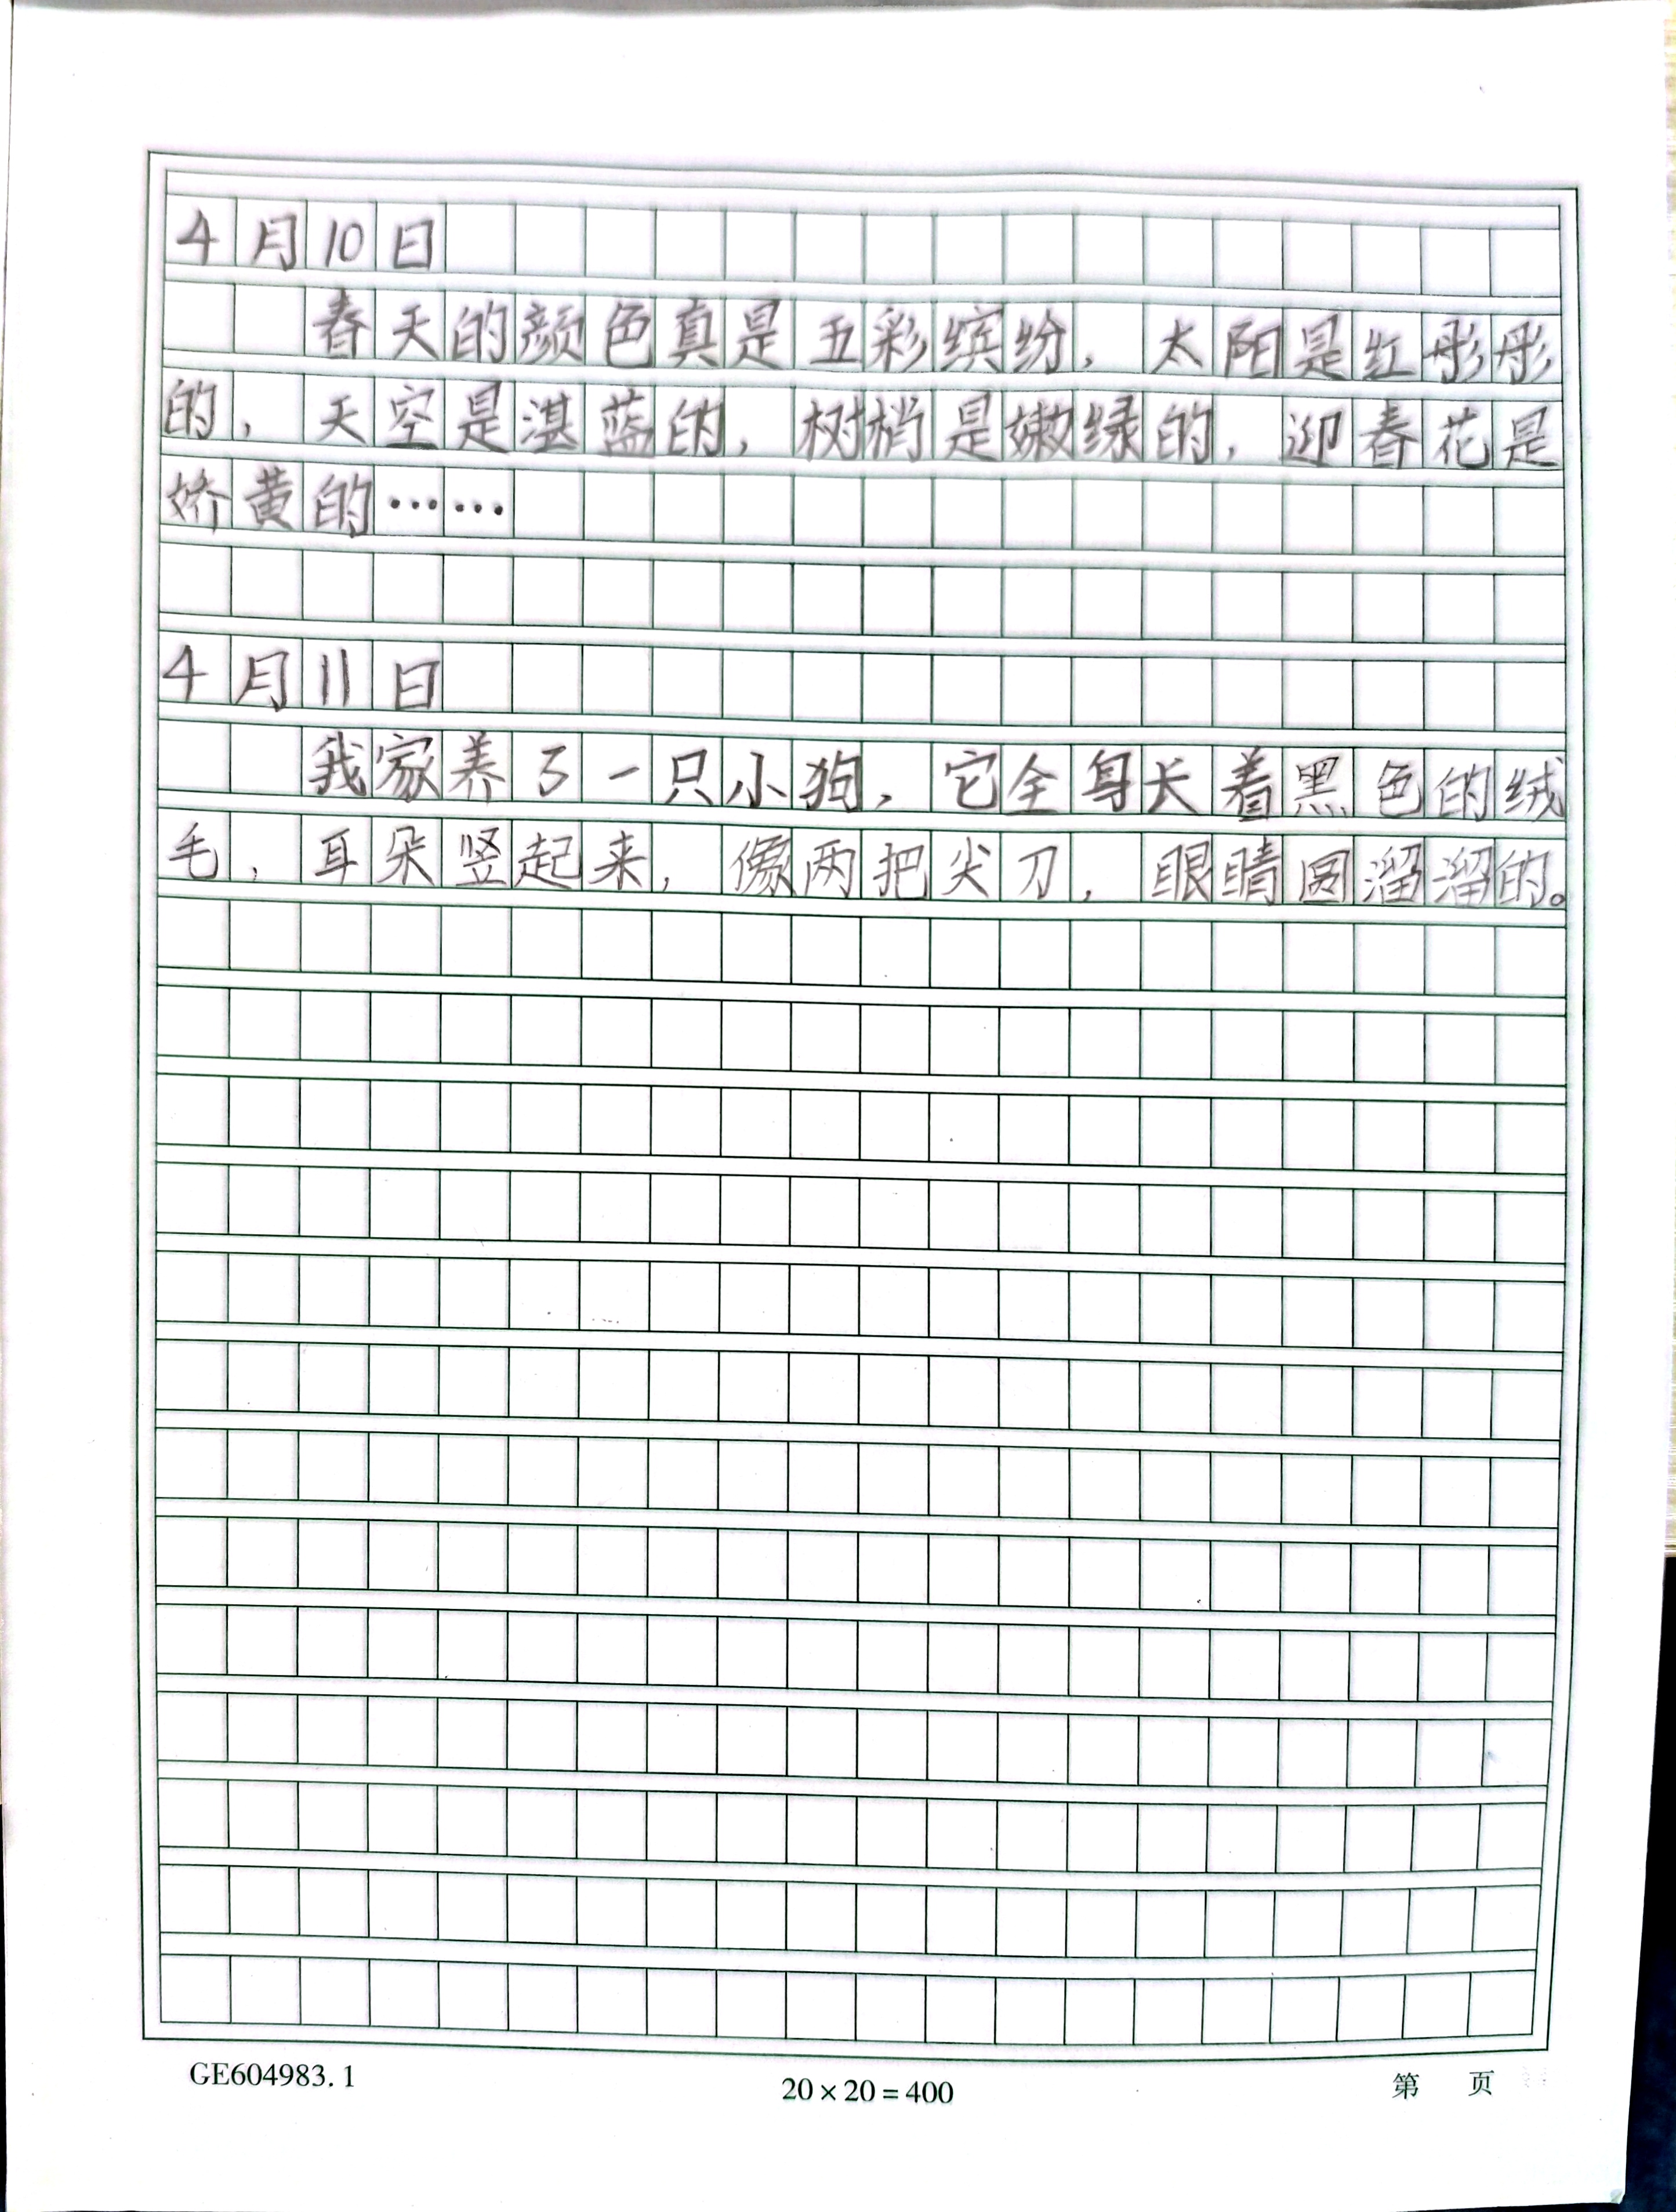 4月10日
春天的颜色真是五彩缤纷，太阳是红彤彤
的，天空是湛蓝的，树梢是嫩绿的，迎春花是
娇黄的……
4月11日
我家养了一只小狗，它全身长着黑色的绒
毛，耳朵竖起来，像两把尖刀，眼睛圆溜溜的。
GE604983.1
20×20=400
第 页